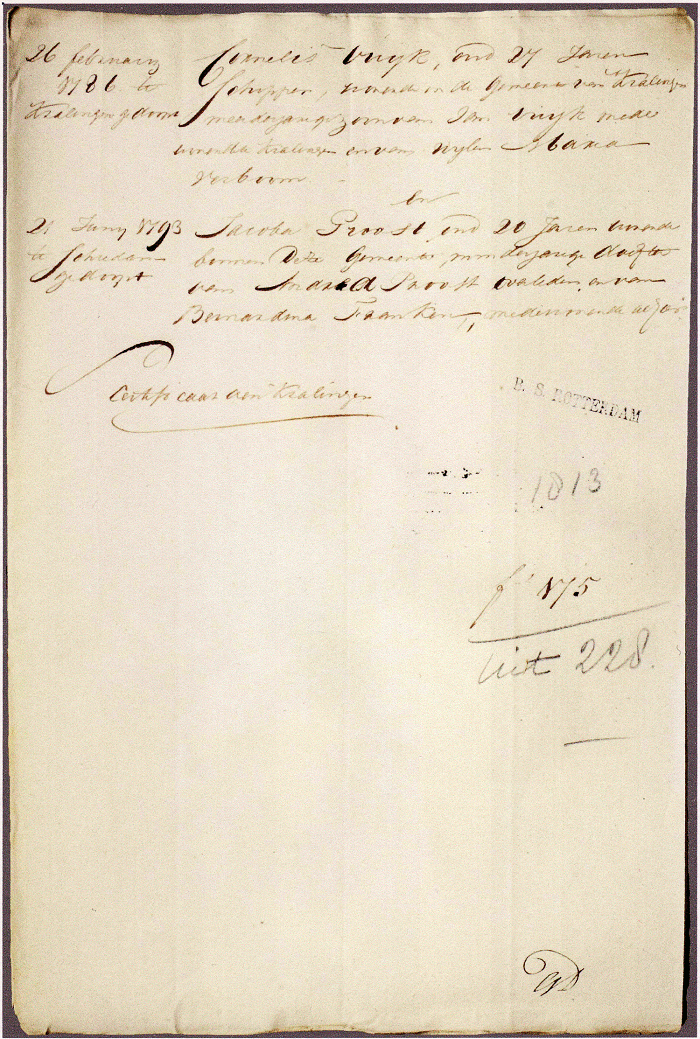 26 februarij
1786 te
Kralingen gedoopt
Cornelis Vuijk, oud 27 Jaren
Schipper, wonende in de Gemeente van Kralingen
meerderjarige zoon van Jan Vuijk mede
wonende te Kralingen en van wijlen Maria
Verboom.
En
21 Junij 1793
te Schiedam
gedoopt
Jacoba Proost, oud 20 Jaren wonende
binnen deze Gemeente, minderjarige dochter
van Andreas Proost overleden, en van
Bernardina Franken, mede wonende alhier
Certificaat van Kralingen
B. S. ROTTERDAM
1813
f° 175
uit 228.